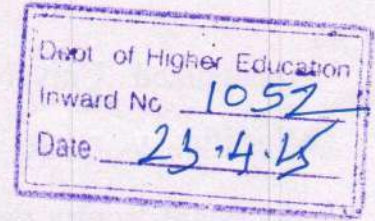 Dept of Higher Education
Inward No 1052
Date 23.4.15